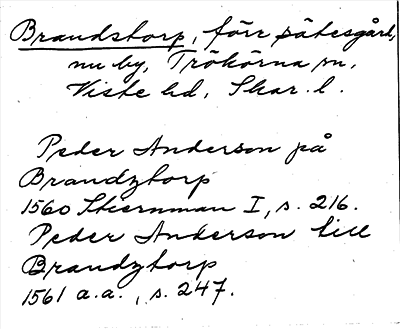 Brandstorp, förr sätesgård,
nu by, Trökörna sn,
Viste hd, Skar. l.
Peder Anderson på
Brandztorp
1560 Stiernman I, s. 216.
Peder Anderson till
Brandztorp
1561 a.a., s. 247.